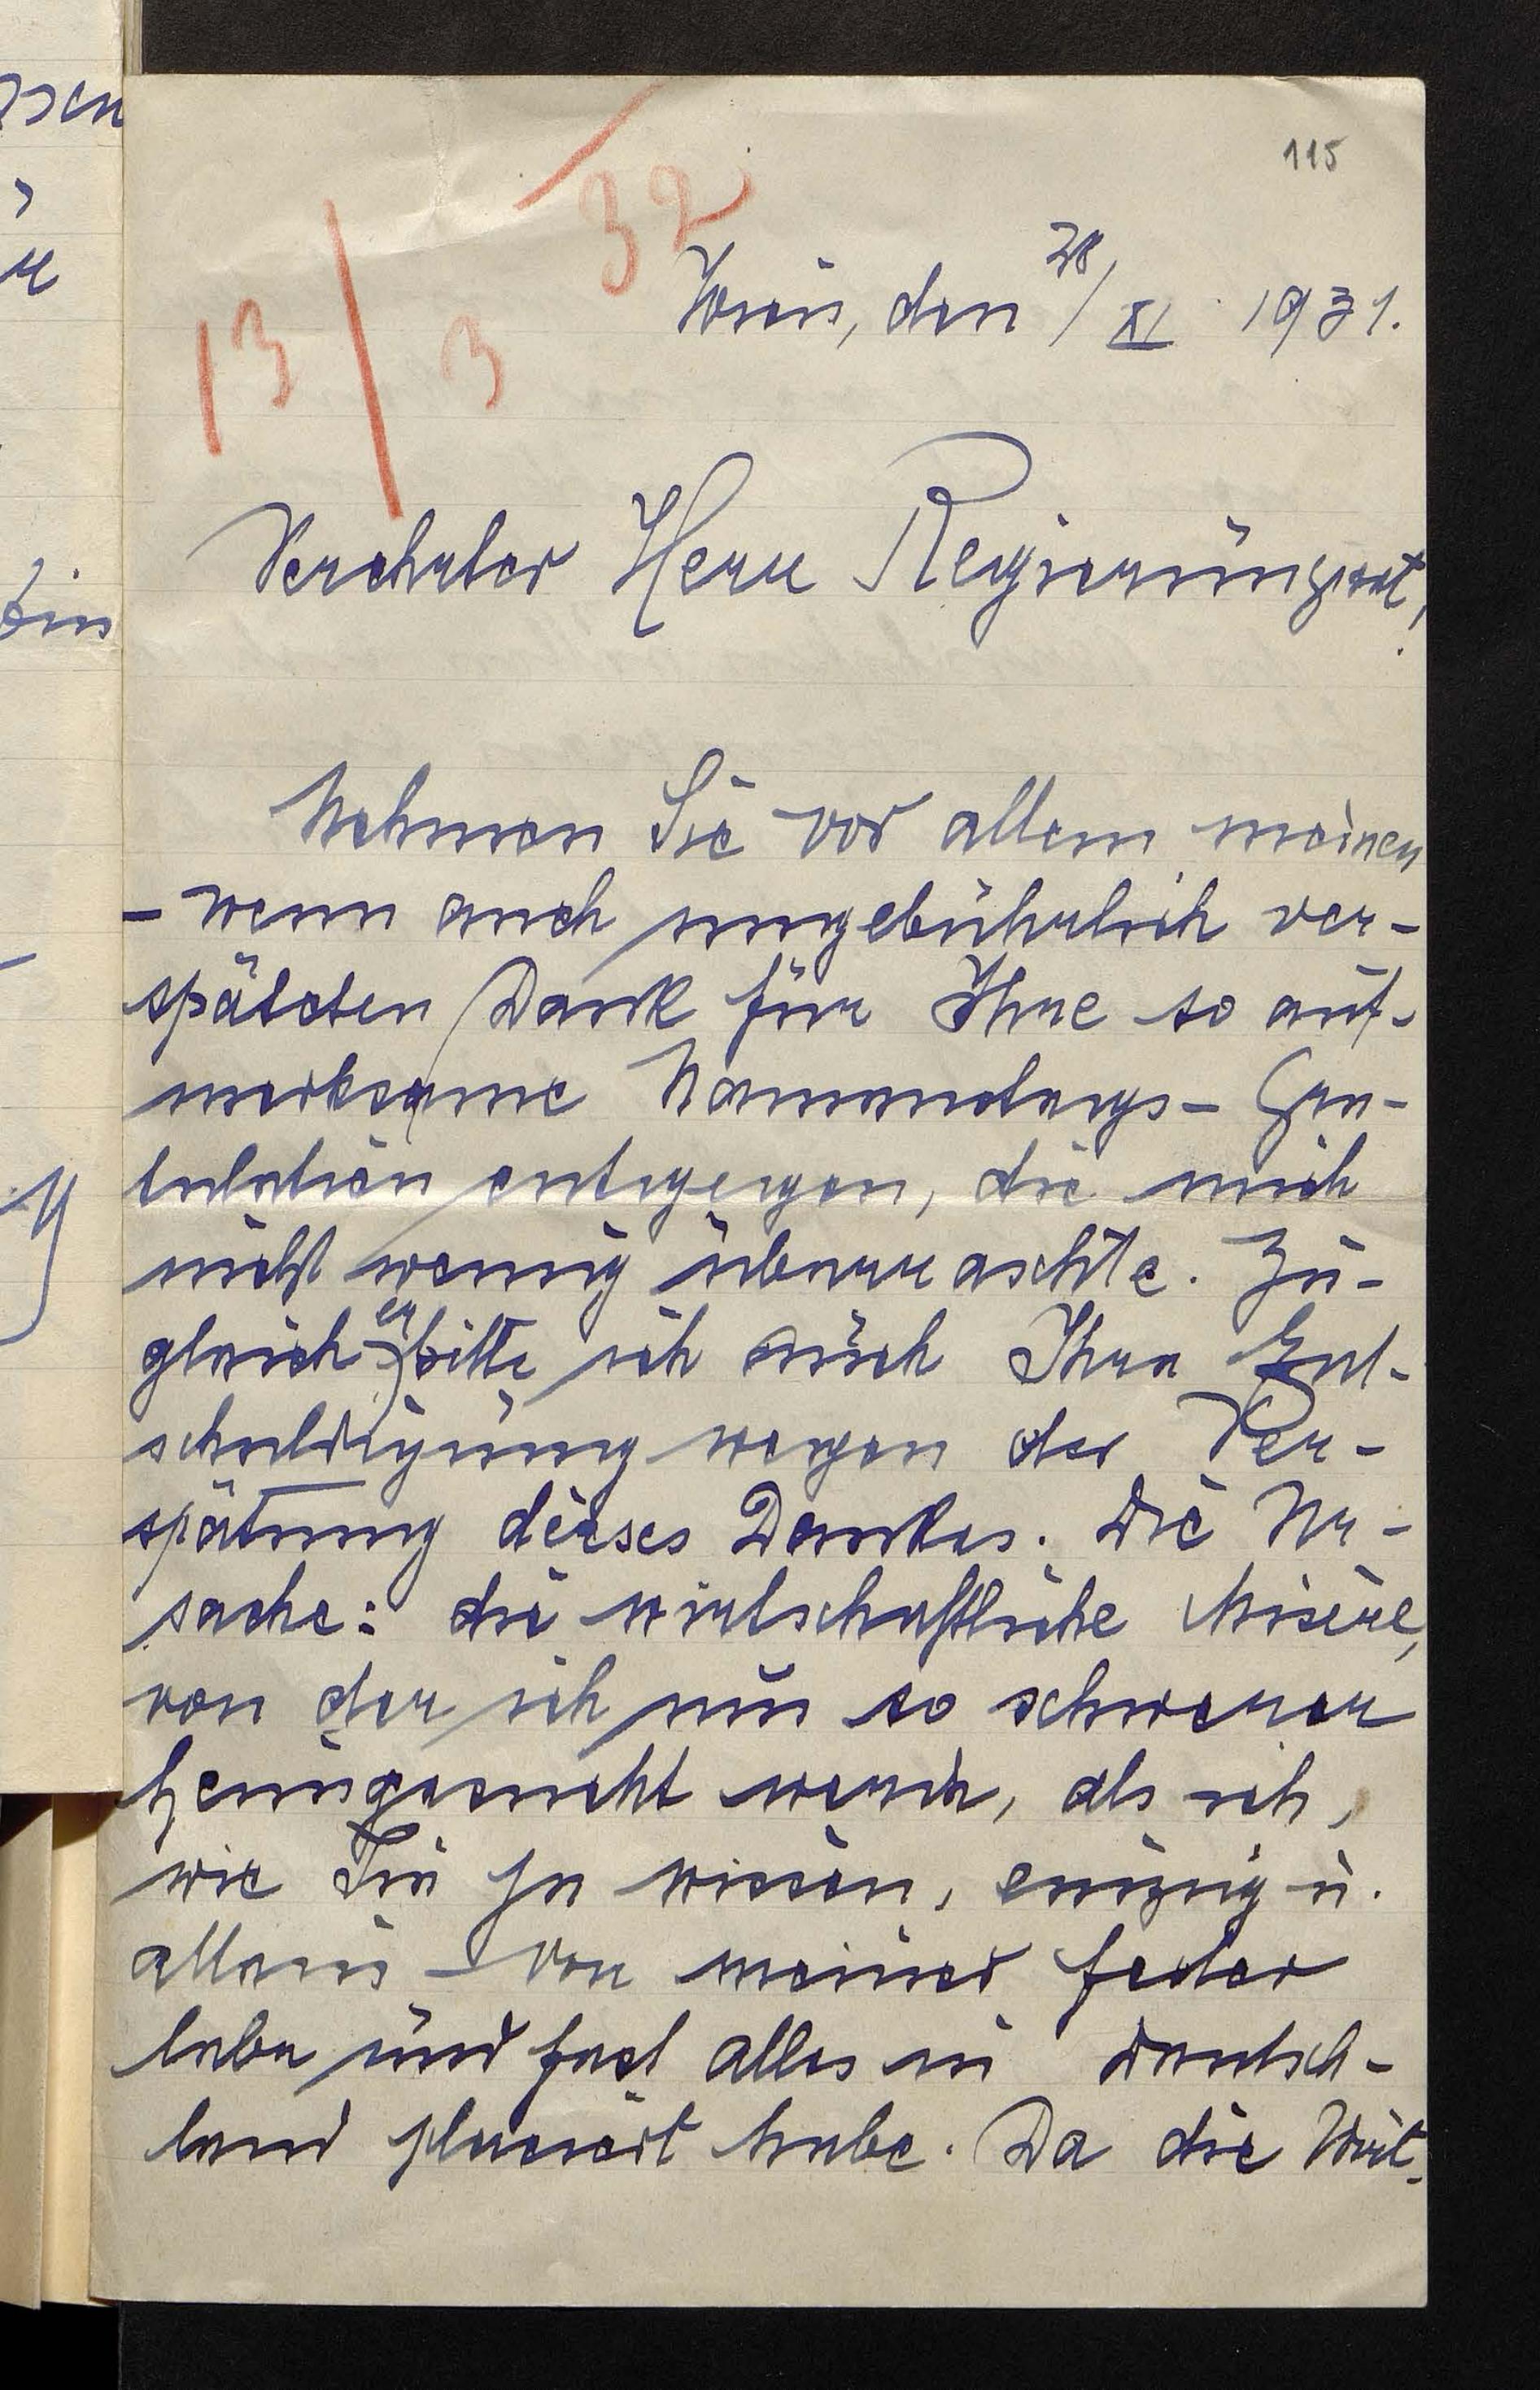 115
32
13/3
Wien, den 28/XI 1931.
Verehrter Herr Regierungsrat!
Nehmen Sie vor allem meinen
- wenn auch ungebührlich ver-
späteten Dank für Ihre so auf-
merksame Namenstags- Gra-
tulation entgegen, die mich
nicht wenig überraschte. Zu-
gleich erbitte ich auch Ihre Ent-
schuldigung wegen der Ver-
spätung dieses Dankes. Die Ur-
sache: die wirtschaftliche Misère,
von der ich um so schwerer
heimgesucht werde, als ich,
wie Sie ja wissen, einzig u.
allein von meiner Feder
lebe und fast alles in Deutsch-
land placiert habe. Da die Wirt-